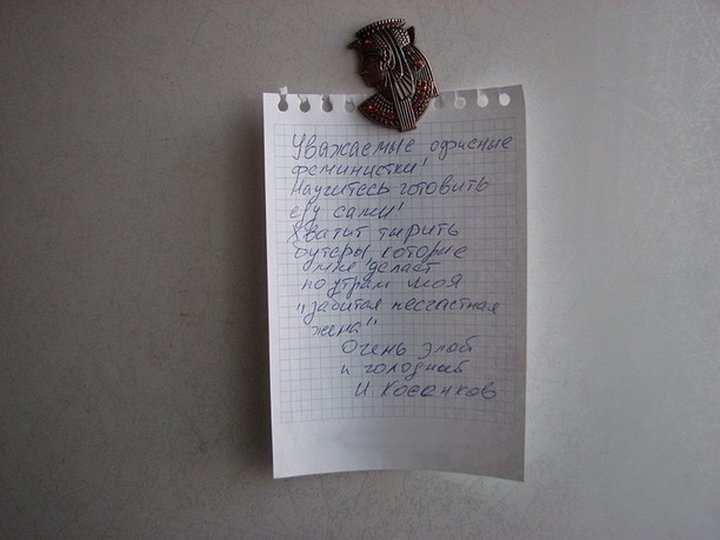 Уважаемые офисные
феминистки!
Научитесь готовить
еду сами!
Хватит тырить
бутеры, которые
мне делает
по утрам моя
"забитая несчастная
жена"
Очень злой
и голодный
И.